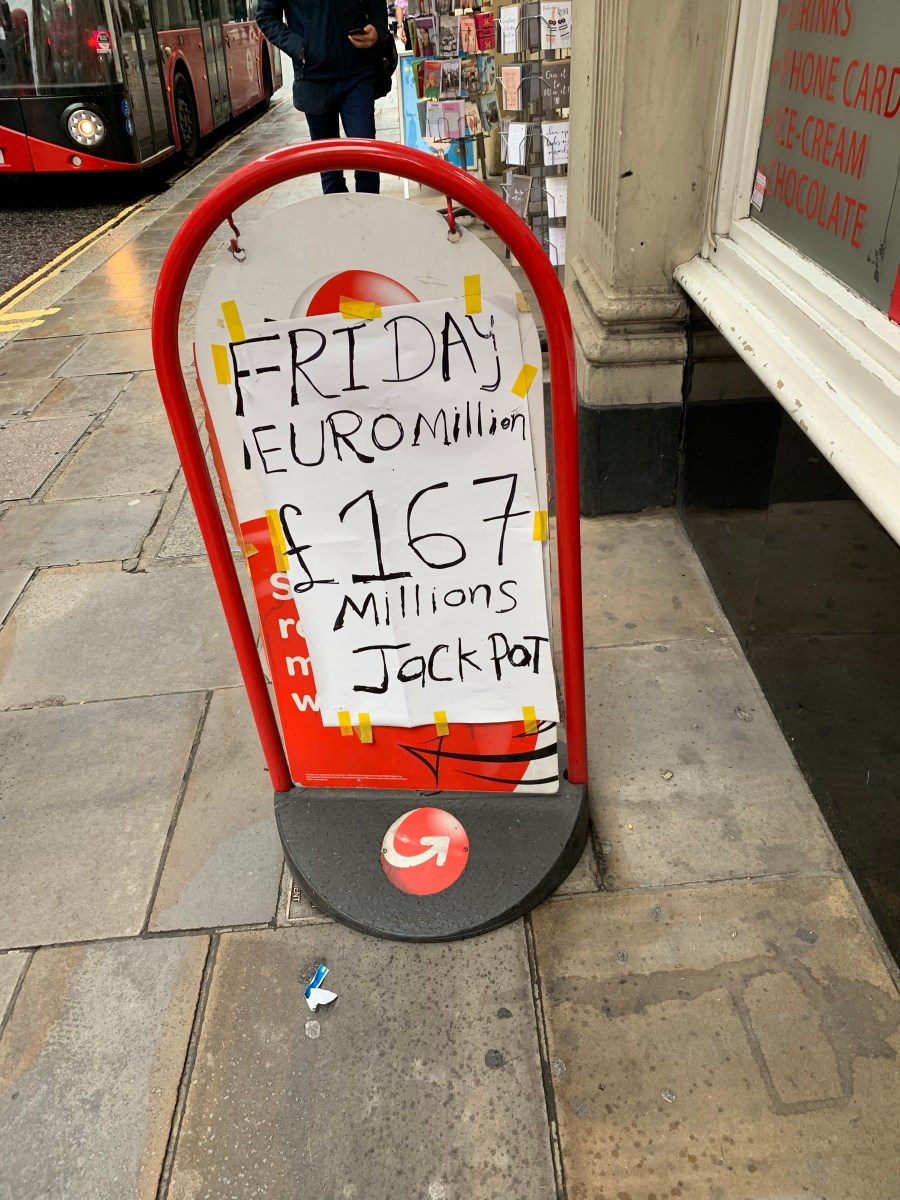 DRINKS
PHONE CARD
ICE-CREAM
CHOCOLATE
FRIDAY
EUROMillion
£167
Millions
JackPOT